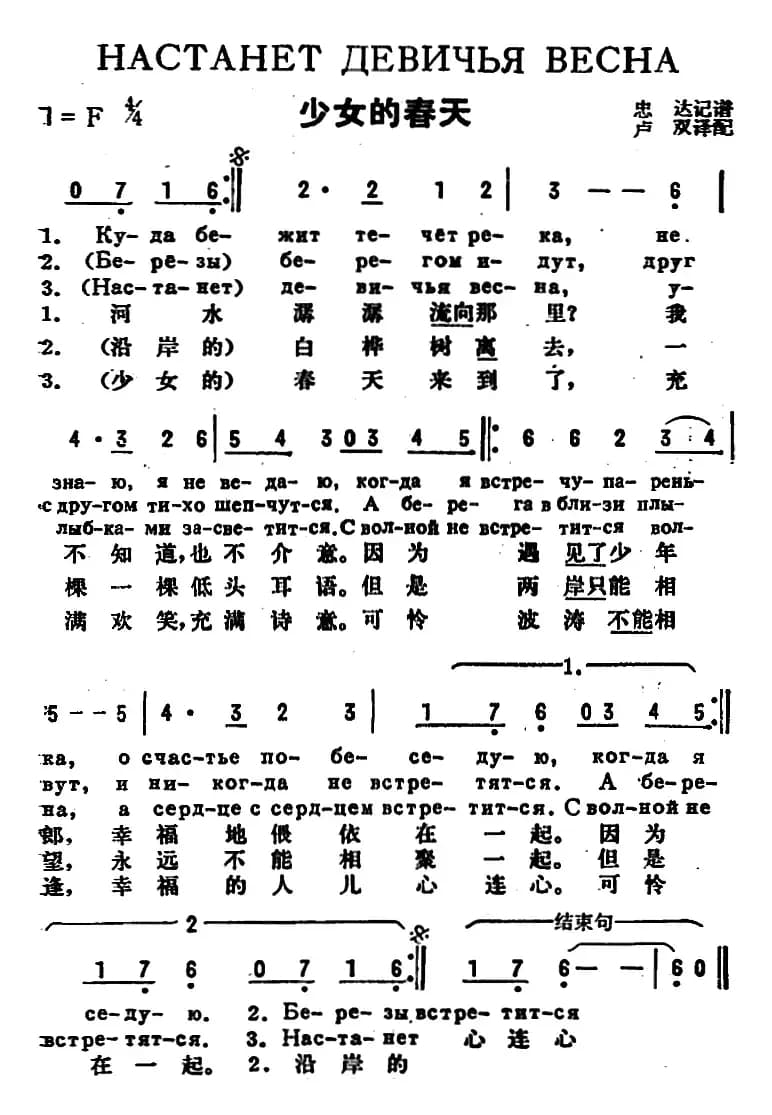 НАСТАНЕТ ДЕВИЧЬЯ ВЕСНА
1 = F 4/4 少女的春天 忠 达记谱
卢 双译配
0 7 1 6 :‖ 2 · 2 1 2 | 3 — — 6 |
1. Ку- да бе- жит те- чёт ре- ка, не.
2. (Бе- рё- зы) бе- ре- гом и- дут, друг
3. (Нас- та- нет) де- ви- чья вес- на, у-
1. 河 水 潺 潺 流向那 里? 我
2. (沿 岸 的) 白 桦 树 离 去, 一
3. (少 女 的) 春 天 来 到 了, 充
4 · 3 2 6 | 5 4 3 0 3 4 5 :‖: 6 6 2 3 4 |
зна- ю, я не ве- да- ю, ког- да я встре- чу па- рень-
с дру- гом ти- хо шеп- чут- ся. А бе- ре- га вбли- зи плы-
лыб- ка- ми за- све- тит- ся. С вол- ной не встре- тит- ся вол-
不 知 道, 也 不 介 意。因 为 遇 见了少 年
棵 一 棵 低 头 耳 语。但 是 两 岸只能 相
满 欢 笑, 充 满 诗 意。可 怜 波 涛 不能相
1.
5 - - 5 | 4 · 3 2 3 | 1 7 6 0 3 4 5 :‖
ка, о счас- тье по- бе- се- ду- ю, ког- да я
вут, и ни- ког- да не встре- тят- ся. А бе- ре-
на, а серд- це с серд- цем встре- тит- ся. С вол- ной не
郎, 幸 福 地 偎 依 在 一 起。因 为
望, 永 远 不 能 相 聚 一 起。但 是
逢, 幸 福 的 人 儿 心 连 心。可 怜
2 结束句
1 7 6 0 7 1 6 :‖ 1 7 6 — — | 6 0 ‖
се- ду- ю. 2. Бе- ре- зы встре- тит- ся
встре- тят- ся. 3. Нас- та- нет 心 连 心
在 一 起。 2. 沿 岸 的